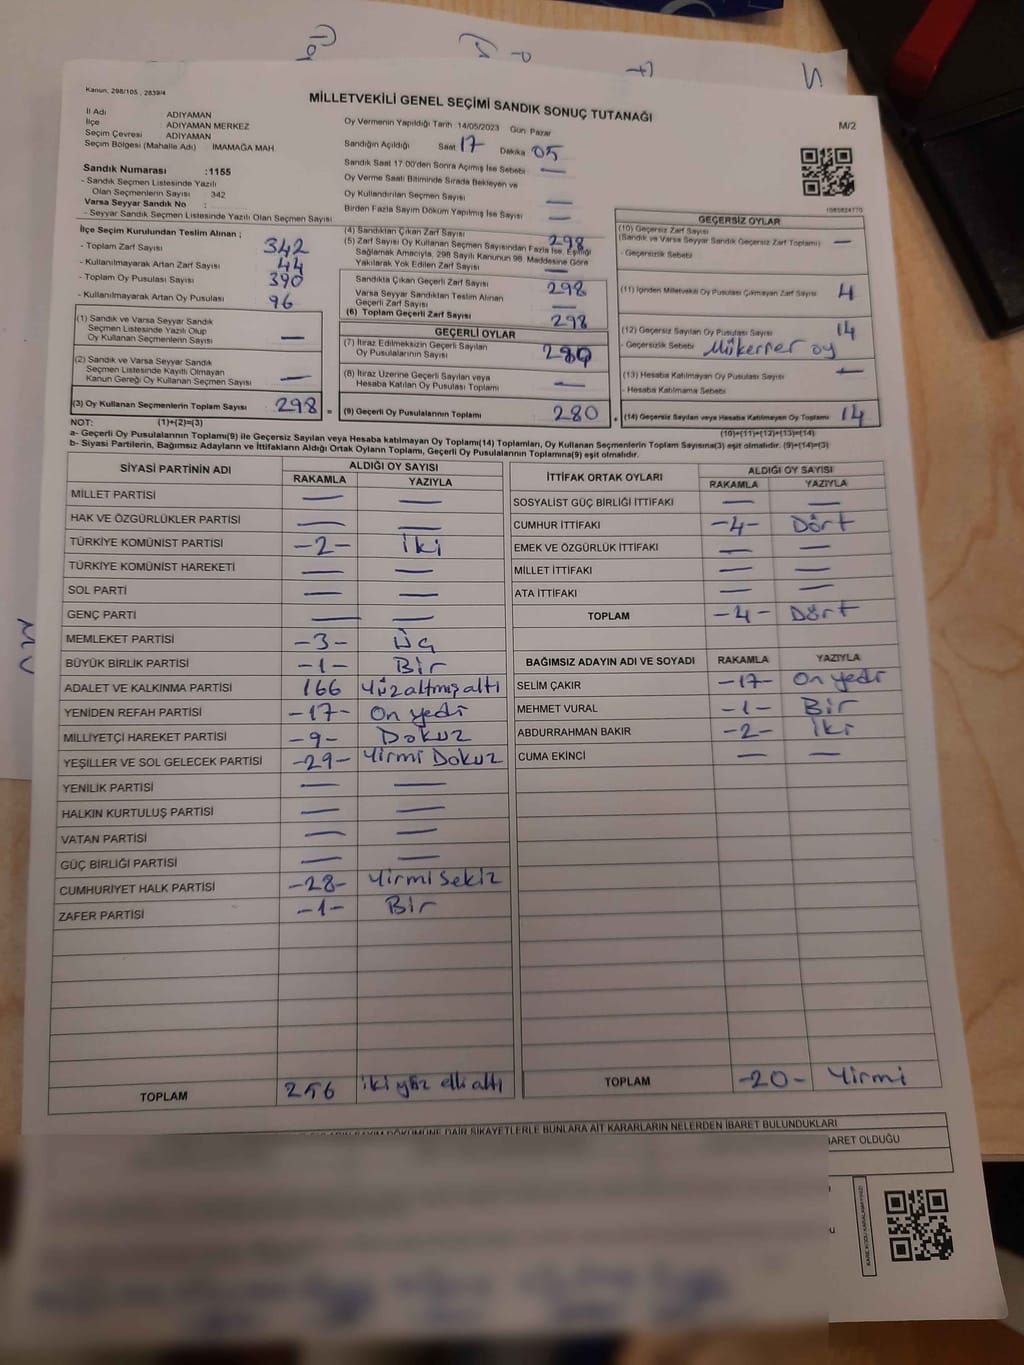 Kanun, 298/105 , 2839/4
MİLLETVEKİLİ GENEL SEÇİMİ SANDIK SONUÇ TUTANAĞI
M/2
İl Adı ADIYAMAN
İlçe ADIYAMAN MERKEZ
Seçim Çevresi ADIYAMAN
Seçim Bölgesi (Mahalle Adı) : İMAMAĞA MAH.
Sandık Numarası :1155
- Sandık Seçmen Listesinde Yazılı
Olan Seçmenlerin Sayısı : 342
Varsa Seyyar Sandık No :
- Seyyar Sandık Seçmen Listesinde Yazılı Olan Seçmen Sayısı
Oy Vermenin Yapıldığı Tarih :14/05/2023 Gün: Pazar
Sandığın Açıldığı Saat 17 Dakika 05
Sandık Saat 17:00'den Sonra Açımış İse Sebebi —
Oy Verme Saati Bitiminde Sırada Bekleyen ve
Oy Kullandırılan Seçmen Sayısı —
Birden Fazla Sayım Döküm Yapılmış İse Sayısı —
1985824770
İlçe Seçim Kurulundan Teslim Alınan ;
- Toplam Zarf Sayısı 342
- Kullanılmayarak Artan Zarf Sayısı 44
- Toplam Oy Pusulası Sayısı 390
- Kullanılmayarak Artan Oy Pusulası 96
(1) Sandık ve Varsa Seyyar Sandık
Seçmen Listesinde Yazılı Olup
Oy Kullanan Seçmenlerin Sayısı —
(2) Sandık ve Varsa Seyyar Sandık
Seçmen Listesinde Kayıtlı Olmayan
Kanun Gereği Oy Kullanan Seçmen Sayısı —
(3) Oy Kullanan Seçmenlerin Toplam Sayısı : 298 =
(1)+(2)=(3)
(4) Sandıktan Çıkan Zarf Sayısı 298
(5) Zarf Sayısı Oy Kullanan Seçmen Sayısından Fazla İse, Eşitliği
Sağlamak Amacıyla, 298 Sayılı Kanunun 98. Maddesine Göre
Yakılarak Yok Edilen Zarf Sayısı —
Sandıkta Çıkan Geçerli Zarf Sayısı 298
Varsa Seyyar Sandıktan Teslim Alınan
Geçerli Zarf Sayısı —
(6) Toplam Geçerli Zarf Sayısı 298
GEÇERLİ OYLAR
(7) İtiraz Edilmeksizin Geçerli Sayılan
Oy Pusulalarının Sayısı 280
(8) İtiraz Üzerine Geçerli Sayılan veya
Hesaba Katılan Oy Pusulası Toplamı —
(9) Geçerli Oy Pusulalarının Toplamı 280 +
GEÇERSİZ OYLAR
(10) Geçersiz Zarf Sayısı
(Sandık ve Varsa Seyyar Sandık Geçersiz Zarf Toplamı) —
- Geçersizlik Sebebi
(11) İçinden Milletvekili Oy Pusulası Çıkmayan Zarf Sayısı 4
(12) Geçersiz Sayılan Oy Pusulası Sayısı 14
- Geçersizlik Sebebi Mükerrer oy
(13) Hesaba Katılmayan Oy Pusulası Sayısı —
- Hesaba Katılmama Sebebi
(14) Geçersiz Sayılan veya Hesaba Katılmayan Oy Toplamı 14
(10)+(11)+(12)+(13)=(14)
NOT:
a- Geçerli Oy Pusulalarının Toplamı(9) ile Geçersiz Sayılan veya Hesaba katılmayan Oy Toplamı(14) Toplamları, Oy Kullanan Seçmenlerin Toplam Sayısına(3) eşit olmalıdır. (9)+(14)=(3)
b- Siyasi Partilerin, Bağımsız Adayların ve İttifakların Aldığı Ortak Oyların Toplamı, Geçerli Oy Pusulalarının Toplamına(9) eşit olmalıdır.
SİYASİ PARTİNİN ADI ALDIĞI OY SAYISI
RAKAMLA YAZIYLA
MİLLET PARTİSİ — —
HAK VE ÖZGÜRLÜKLER PARTİSİ — —
TÜRKİYE KOMÜNİST PARTİSİ -2- İki
TÜRKİYE KOMÜNİST HAREKETİ — —
SOL PARTİ — —
GENÇ PARTİ — —
MEMLEKET PARTİSİ -3- Üç
BÜYÜK BİRLİK PARTİSİ -1- Bir
ADALET VE KALKINMA PARTİSİ 166 Yüz altmış altı
YENİDEN REFAH PARTİSİ -17- On yedi
MİLLİYETÇİ HAREKET PARTİSİ -9- Dokuz
YEŞİLLER VE SOL GELECEK PARTİSİ -29- Yirmi Dokuz
YENİLİK PARTİSİ — —
HALKIN KURTULUŞ PARTİSİ — —
VATAN PARTİSİ — —
GÜÇ BİRLİĞİ PARTİSİ — —
CUMHURİYET HALK PARTİSİ -28- Yirmi Sekiz
ZAFER PARTİSİ -1- Bir
TOPLAM 256 iki yüz elli altı
İTTİFAK ORTAK OYLARI ALDIĞI OY SAYISI
RAKAMLA YAZIYLA
SOSYALİST GÜÇ BİRLİĞİ İTTİFAKI — —
CUMHUR İTTİFAKI -4- Dört
EMEK VE ÖZGÜRLÜK İTTİFAKI — —
MİLLET İTTİFAKI — —
ATA İTTİFAKI — —
TOPLAM -4- Dört
BAĞIMSIZ ADAYIN ADI VE SOYADI RAKAMLA YAZIYLA
SELİM ÇAKIR -17- On yedi
MEHMET VURAL -1- Bir
ABDURRAHMAN BAKIR -2- İki
CUMA EKİNCİ — —
TOPLAM -20- Yirmi
DÖKÜMÜNE DAİR ŞİKAYETLERLE BUNLARA AİT KARARLARIN NELERDEN İBARET BULUNDUKLARI
İBARET OLDUĞU
KARE KODU KARALAMAYINIZ!